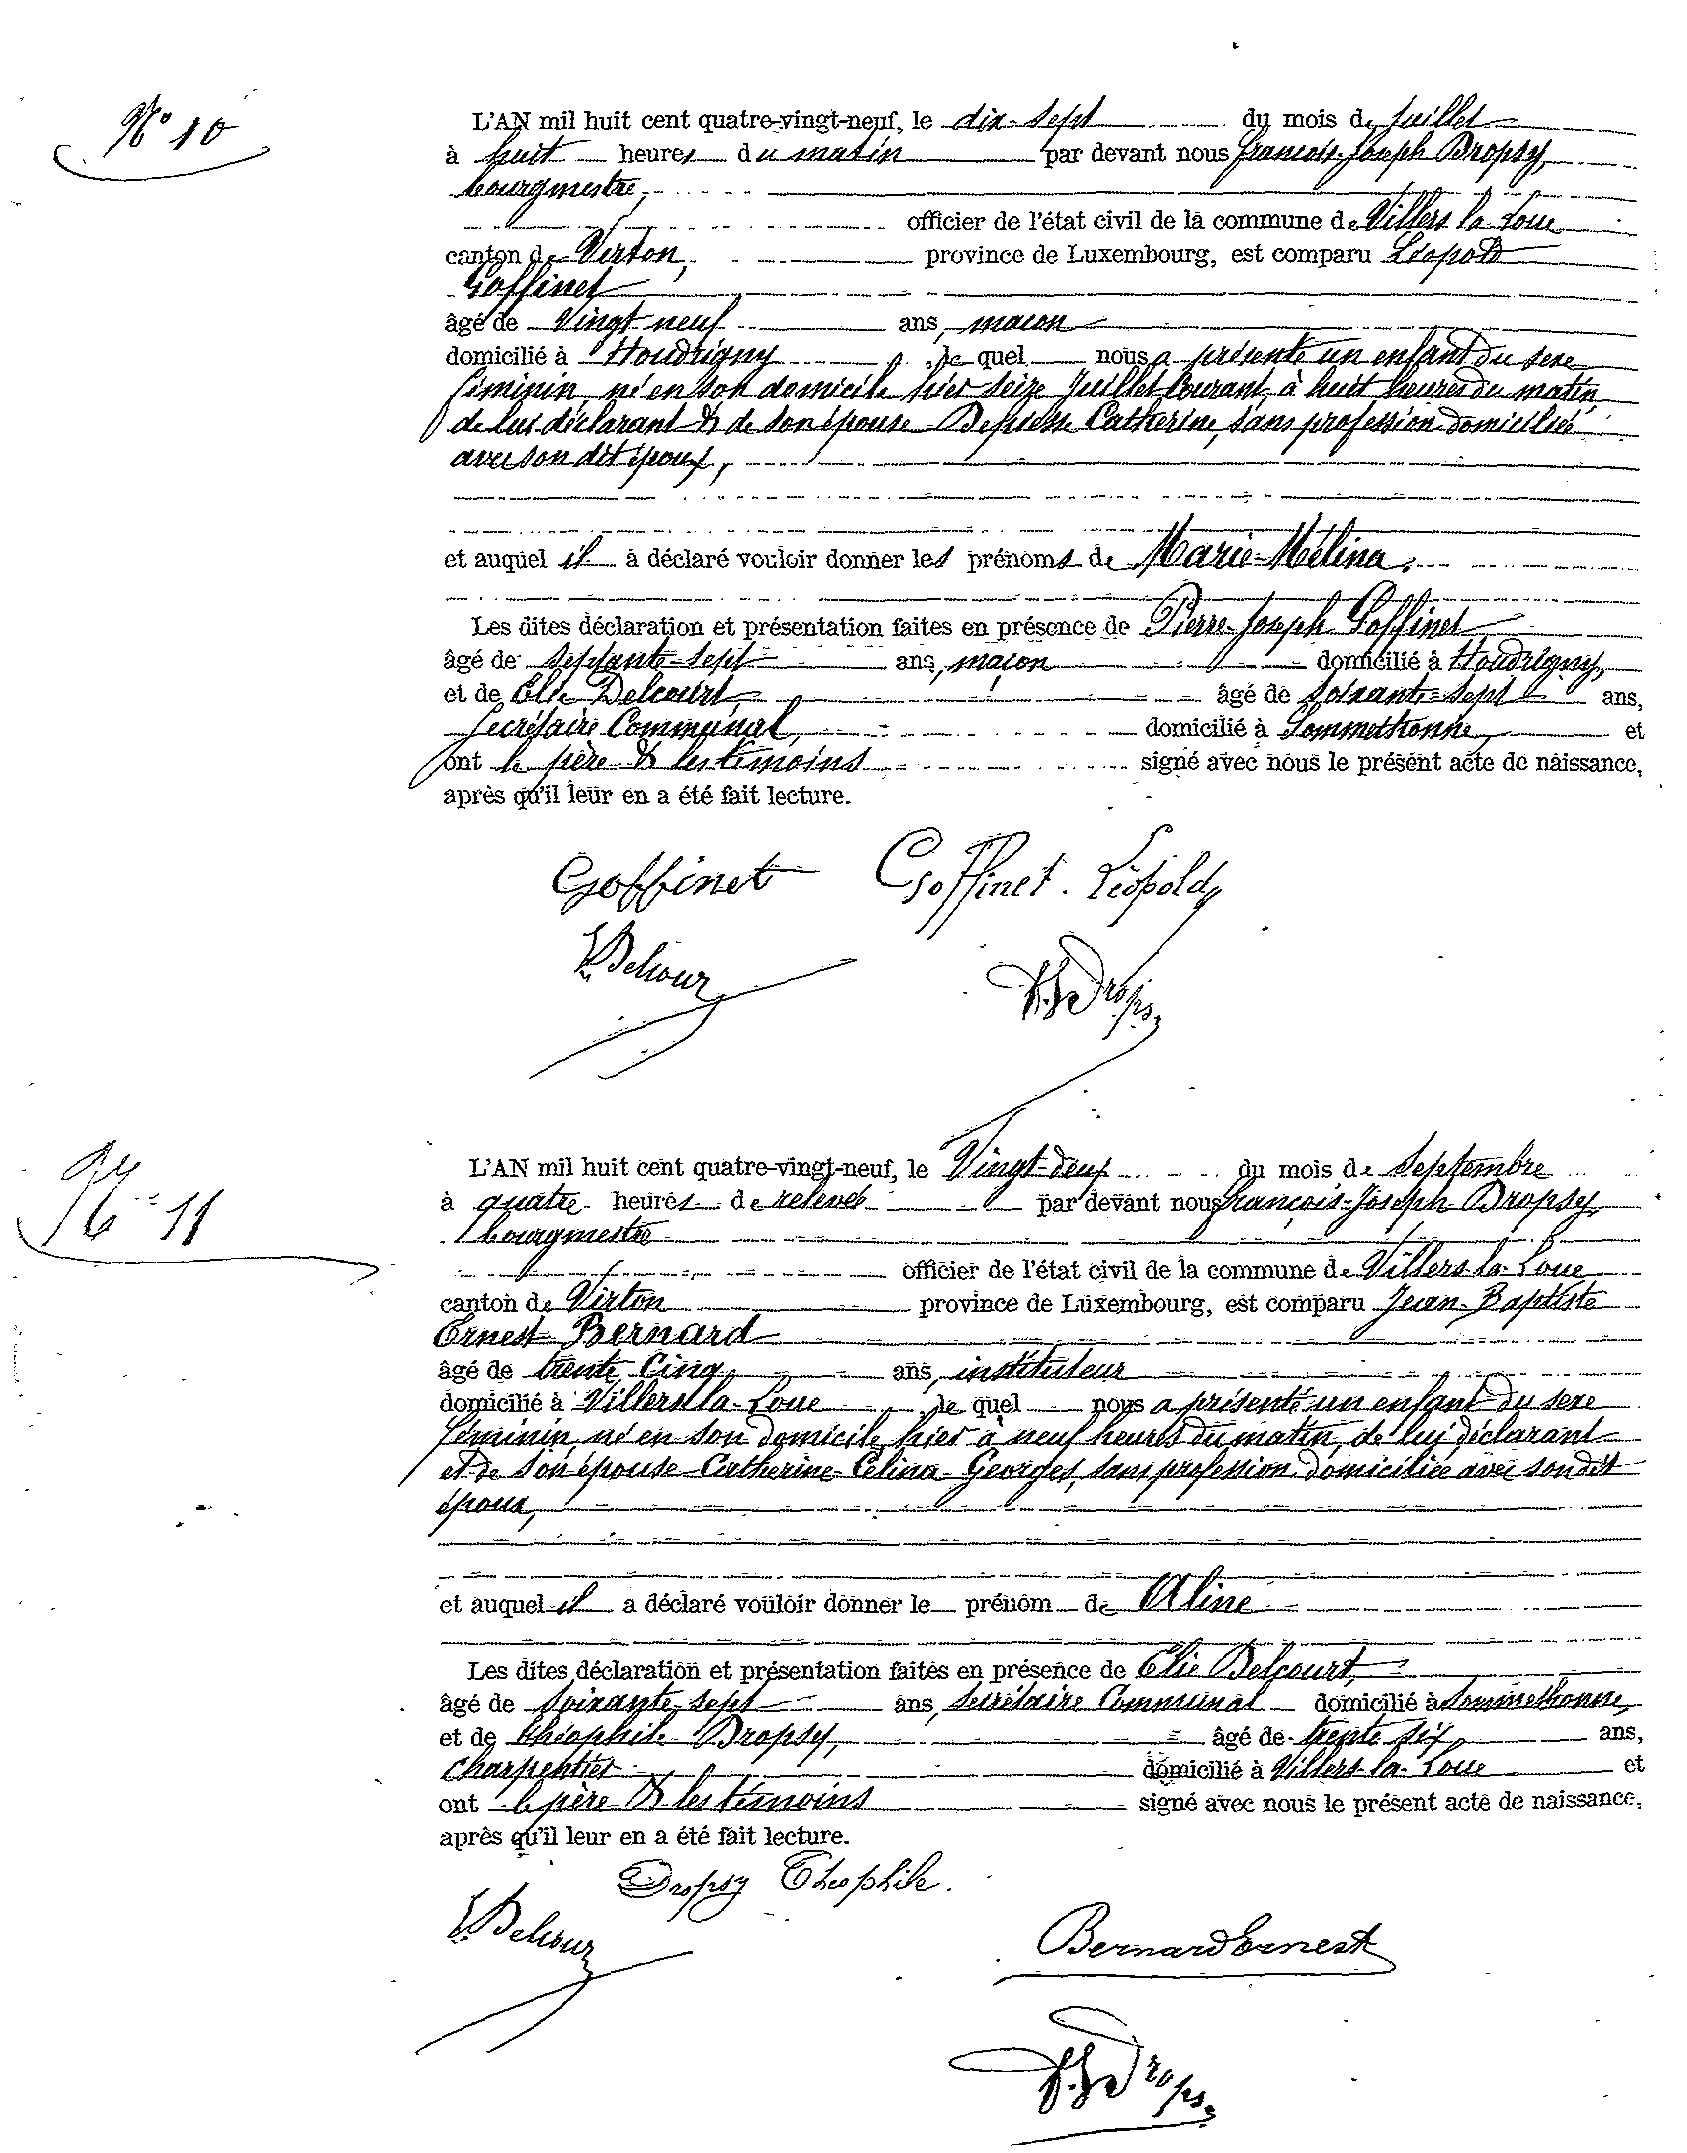 N° 10
L'AN mil huit cent quatre-vingt-neuf, le dix-sept du mois de juillet
à huit heures du matin par devant nous François-Joseph Dropsy,
bourgmestre,
officier de l'état civil de la commune de Villers la Loue
canton de Virton, province de Luxembourg, est comparu Léopold
Goffinet
âgé de Vingt neuf ans, maçon
domicilié à Houdrigny, le quel nous a présenté un enfant du sexe
féminin, né en son domicile hier seize Juillet courant, à huit heures du matin,
de lui déclarant & de son épouse Catherine, sans profession domiciliée
avec son dit époux,
et auquel il a déclaré vouloir donner les prénoms de Marie-Mélina.
Les dites déclaration et présentation faites en présence de Pierre-Joseph Goffinet
âgé de septante-sept ans, maçon domicilié à Houdrigny,
et de Elie Delcourt, âgé de soixante-sept ans,
Secrétaire Communal, domicilié à Sommethonne, et
ont le père & les témoins signé avec nous le présent acte de naissance,
après qu'il leur en a été fait lecture.
Goffinet Goffinet Léopold
E. Delcour F. J. Dropsy
N° 11
L'AN mil huit cent quatre-vingt-neuf, le Vingt-deux du mois de septembre
à quatre heures de relevée par devant nous François-Joseph Dropsy,
bourgmestre
officier de l'état civil de la commune de Villers-la-Loue
canton de Virton province de Luxembourg, est comparu Jean-Baptiste
Ernest Bernard
âgé de trente cinq ans, instituteur
domicilié à Villers-la-Loue, le quel nous a présenté un enfant du sexe
féminin, né en son domicile, hier à neuf heures du matin, de lui déclarant
et de son épouse Catherine-Célina Georges, sans profession domiciliée avec son dit
époux,
et auquel il a déclaré vouloir donner le prénom de Aline
Les dites déclaration et présentation faites en présence de Elie Delcourt,
âgé de soixante-sept ans, Secrétaire Communal domicilié à Sommethonne,
et de Théophile Dropsy, âgé de trente six ans,
charpentier domicilié à Villers-la-Loue et
ont le père & les témoins signé avec nous le présent acte de naissance,
après qu'il leur en a été fait lecture.
Dropsy Théophile.
E. Delcour Bernard Ernest
F. J. Dropsy